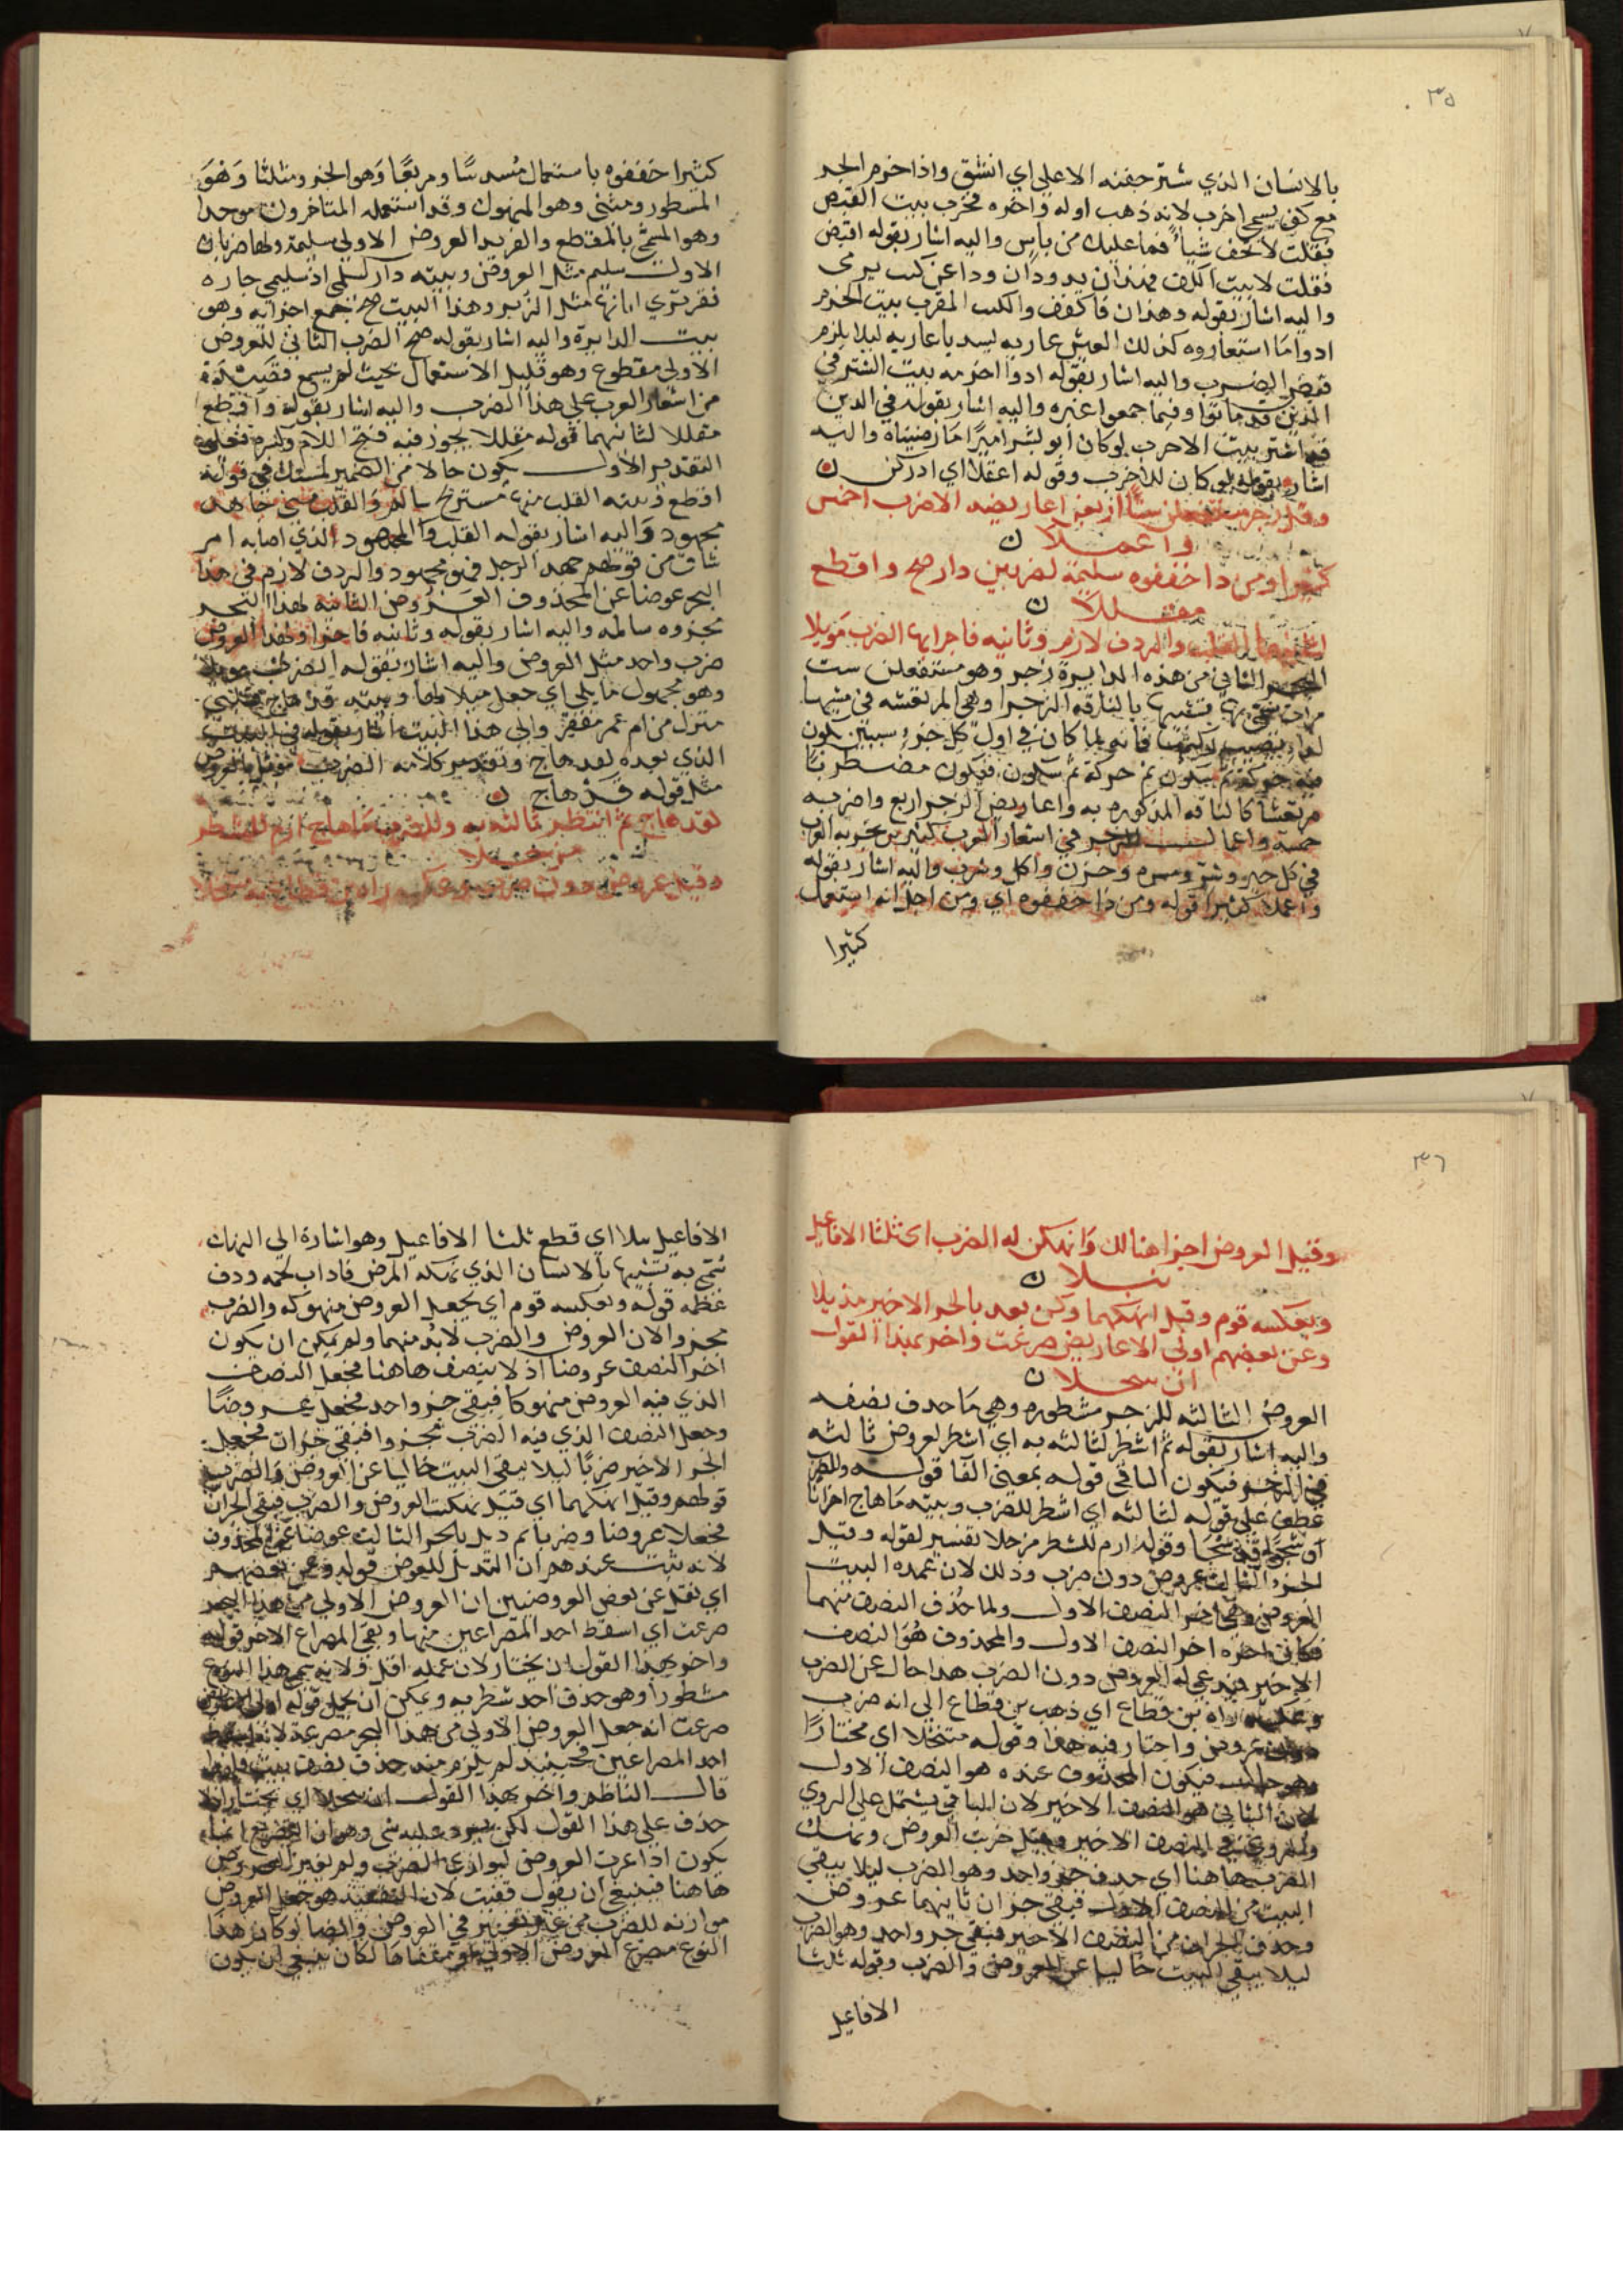 ٣٥
بالانسان الذي شتر جفنه الاعلى اي انشق واذا خرم الجزء
مع كف يسمى اخرب لانه ذهب اوله واخره مخرب بيت القبض
فقلت لا تخف شيأ فما عليك من باس واليه اشار بقوله اقبض
فقلت لا بيت الكف فهذان يذودان وذا عن كثب يرمى
واليه اشار بقوله وهذان فاكفف والكثب المقرب بيت الخرم
ادوا ما استعاروه كذلك العيش عاريه ليس باعاريه ليلا يلزم
قصر الضرب واليه اشار بقوله ادوا اخرمه بيت الشتر في
الذين قد ماتوا وفيما جمعوا عبره واليه اشار بقوله في الذين
اشتر بيت الاخرب لو كان ابو بشر اميرا ما رضيناه واليه
اشار بقوله لو كان للاخرب وقوله اعقلا اي ادركن
وقل رجز مستفعلن ستا اربعن اعاريضه الاضرب اخمس
واعملا
كثيرا ومن ذا خففوه سليمة لضربين دار صح واقطع
مقللا
والردف لازم وثانيه فاجزا الضرب مويلا
الثاني من هذه الدايرة رجز وهو مستفعلن ست
مرات سمي بها تشبيها بالناقه الزجرا وهي المرتعشه في مشيها
فانه لما كان في اول كل جزء سببين يكون
حركة ثم سكون ثم حركة ثم سكون فيكون مضطربا
مرتعشا كالناقه المذكوره به واعاريض الرجز اربع واضربه
خمسة واعمال الرجز في اشعار العرب كثير
في كل خير وشر ومسره وحزن واكل وشرب واليه اشار بقوله
واعملا كثيرا قوله ومن ذا خففوه اي ومن اجل انه استعمل
كثيرا
كثيرا خففوه باستعمال مسدسا ومربعا وهو الجزو ومثلثا وهو
المشطور ومثنى وهو المنهوك وقد استعمله المتاخرون موحدا
وهو المسمى بالمقطع والفريد العروض الاولى سليمة ولها ضربان
الاول سليم مثل العروض وبيته دار لسلمى اذ سليمى جاره
قفر ترى اياتها مثل الزبر وهذا البيت صح جمع اجزايه وهو
بيت الدايرة واليه اشار بقوله صح الضرب الثاني للعروض
الاولى مقطوع وهو قليل الاستعمال بحيث لم يسمع قصيدة
من اشعار العرب على هذا الضرب واليه اشار بقوله واقطع
مقللا لثانيهما قوله مقللا يجوز فيه فتح اللام وكسرها فعلى
التقدير الاول يكون حالا من الضمير المستكن في قوله
اقطع وبيته القلب منها مستريح سالم والقلب مني جاهد
مجهود واليه اشار بقوله القلب والمجهود الذي اصابه امر
شاق من قولهم جهد الرجل فهو مجهود والردف لازم في هذا
البحر عوضا عن المحذوف العروض الثانيه لهذا البحر
مجزوه سالمه واليه اشار بقوله وثانيه فاجزا ولهذا العروض
ضرب واحد مثل العروض واليه اشار بقوله الضرب مويلا
وهو مجهول مايلي اي جعل ميلا لها وبيته قد هاج قلبي
منزل من ام عمر مقفر والى هذا البيت اشار بقوله في البيت
الذي بعده لقد هاج وتقدير كلامه الضرب مويلا بالعروض
مثل قوله قد هاج
لقد هاج ثم انتظر ثالثه به وللضرب ما هاج ارم للشطر
مزحلا
وقيل عروض دون ضرب وعكسه راه بن قطاع به متخلا
٣٦
وقيل العروض اجزا هنالك وانهكن له الضرب اي ثلثا الافاعيل
ببلا
ويعكسه قوم وقيل انهكهما وكن بعد بالجزء الاخير مذيلا
وعن بعضهم اولى الاعاريض صرعت واخر بهذا القول
ان سحلا
العروض الثالثه للرجز مشطوره وهي ما حذف نصفه
واليه اشار بقوله ثم اشطر لثالثه به اي اشطر لعروض ثالثه
في الرجز فيكون الباقي قوله بمعنى الفا قوله وللضرب
عطف على قوله لثالثه اي اشطر للضرب وبيته ما هاج احزانا
وشجوا قد شجا وقوله ارم للشطر مزحلا تفسير لقوله وقيل
الجزء الثالث عروض دون ضرب وذلك لان عمده البيت
العروض وهي اخر النصف الاول ولما حذف النصف منهما
فكان اخره اخر النصف الاول والمحذوف هو النصف
الاخير فيدعى له العروض دون الضرب هذا حال عن الضرب
وعكسه راه بن قطاع اي ذهب بن قطاع الى انه ضرب
دون عروض واختار فيه هذا وقوله متنخلا اي مختارا
وهو حال فيكون المحذوف عنده هو النصف الاول
لان الثاني هو النصف الاخير لان الباقي يشتمل على الروي
والروي في النصف الاخير وقيل جزيت العروض ونهك
الضرب هاهنا اي حذف جزء واحد وهو الضرب ليلا يبقى
البيت من النصف الاول فبقى جزان ثانيهما عروض
وحذف الجزان من النصف الاخير فبقى جزء واحد وهو الضرب
ليلا يبقى البيت خاليا عن العروض والضرب وقوله ثلثا
الافاعيل
الافاعيل ببلا اي قطع ثلثا الافاعيل وهو اشارة الى النهك
سمي به تشبيها بالانسان الذي نهكه المرض فاذاب لحمه ودق
عظمه قوله ويعكسه قوم اي يجعل العروض منهوكه والضرب
مجزوا لان العروض والضرب لابد منهما ولم يمكن ان يكون
اخر النصف عروضا اذ لا ينصف هاهنا فجعل النصف
الذي فيه العروض منهوكا فيبقى جزء واحد فجعل عروضا
وجعل النصف الذي فيه الضرب مجزوا فبقى جزان فجعل
الجزء الاخير ضربا ليلا يبقى البيت خاليا عن العروض والضرب
قولهم وقيل انهكهما اي قيل نهكت العروض والضرب فبقى الجزان
فجعلا عروضا وضربا ثم ذيل بالجزء الثالث عوضا عن المحذوف
لانه ثبت عندهم ان التذيل للعوض قوله وعن بعضهم
اي نقل عن بعض العروضيين ان العروض الاولى من هذا البحر
صرعت اي اسقط احد المصراعين منها وبقى المصراع الاخر قوله
واخر بهذا القول ان يختار لان عمله اقل ولانه سمى هذا النوع
مشطورا وهو حذف احد شطريه ويمكن ان يحمل قوله اولى الاعاريض
صرعت انه جعل العروض الاولى من هذا البحر مصرعة لانه
احد المصراعين فحينيذ لم يلزم منه حذف نصف بيت
قال الناظم واخر بهذا القول ان سحلا اي يختار اذ لا
حذف على هذا القول لكن يرد عليه شي وهو ان التصريع انما
يكون اذا غيرت العروض ليوازي الضرب ولم تغير العروض
هاهنا فينبغي ان يقول قفيت لان التقفيه هو جعل العروض
موازنه للضرب من غير تغيير في العروض وايضا لو كان هذا
النوع مصرع العروض الاولى او مقفاها لكان ينبغي ان يكون